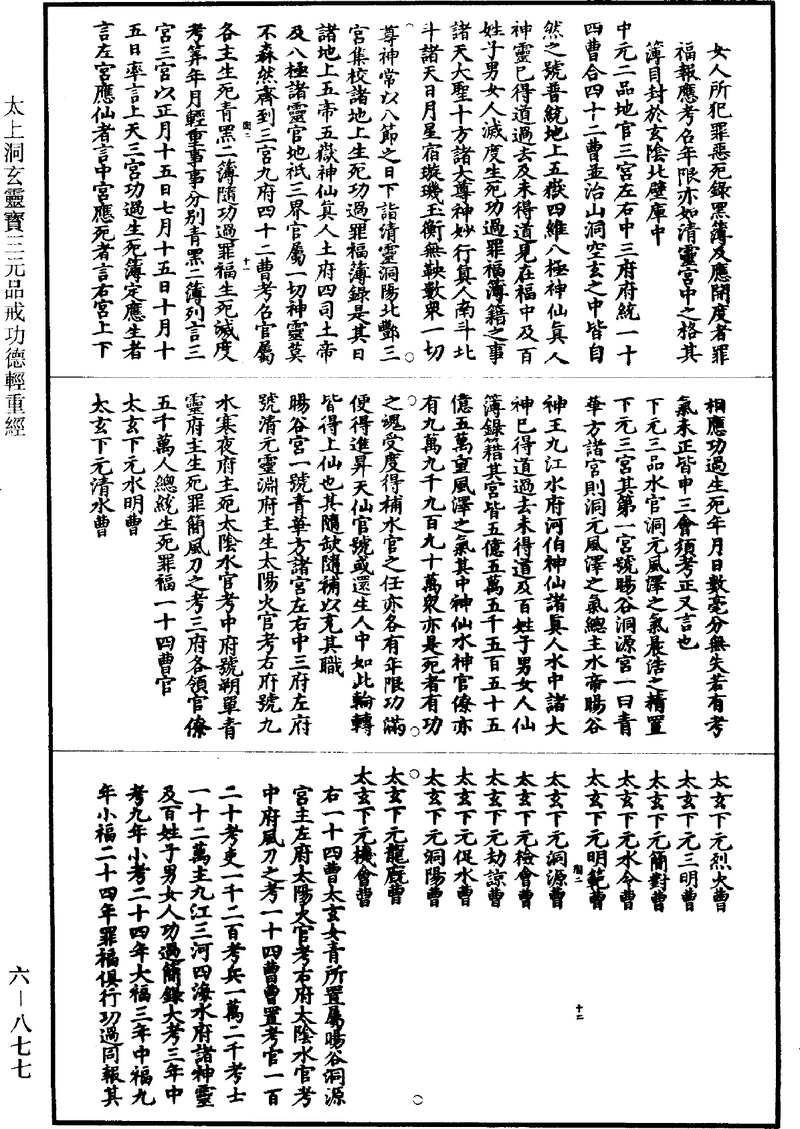 女人所犯罪惡死錄黑薄及應開度者罪
福報應考名年限亦如清靈宮中之格其
簿目封於玄陰北壁庫中
中元二品地官三宮左右中三府府統一十
四曹合四十二曹並治山洞空玄之中皆自
然之號普統地上五嶽四維八極神仙真人
神靈已得道過去及未得道見在福中及百
姓子男女人滅度生死功過罪福簿籍之事
諸天大聖十方諸大尊神妙行真人南斗北
斗諸天日月星宿璇璣玉衡無鞅數衆一切
尊神常以八節之日下詣清靈洞陽北酆三
宮集校諸地上生死功過罪福簿錄是其日
諸地上五帝五嶽神仙真人土府四司土帝
及八極諸靈官地祇三界官屬一切神靈莫
不森然齊到三宮九府四十二曹考名官屬
各主生死青黑二簿隨功過罪福生死滅度
考筭年月輕重事事分別青黑二簿列言三
宮三宮以正月十五日七月十五日十月十
五日率言上天三宮功過生死簿定應生者
言左宮應仙者言中宮應死者言右宮上下
相應功過生死年月日數毫分無失若有考
氣未正皆申三會須考正又言也
下元三品水官洞元風澤之氣晨浩之精置
下元三宮其第一宮號暘谷洞源宮一曰青
華方諸宮則洞元風澤之氣總主水帝暘谷
神王九江水府河伯神仙諸真人水中諸大
神已得道過去未得道及百姓子男女人仙
簿錄籍其宮皆五億五萬五千五百五十五
億五萬重風澤之氣其中神仙水神官僚亦
有九萬九千九百九十萬衆亦是死者有功
之魂受度得補水官之任亦各有年限功滿
便得進昇天仙官號或還生人中如此輪轉
皆得上仙也其隨缺隨補以充其職
暘谷宮一號青華方諸宮左右中三府左府
號清元靈淵府主生太陽火官考右府號九
水寒夜府主死太陰水官考中府號朔單青
靈府主生死罪簡風刀之考三府各領官僚
五千萬人總統生死罪福一十四曹官
太玄下元水明曹
太玄下元清水曹
太玄下元烈火曹
太玄下元三明曹
太玄下元簡對曹
太玄下元水令曹
太玄下元明範曹
太玄下元洞源曹
太玄下元檢會曹
太玄下元劫諒曹
太玄下元促水曹
太玄下元洞陽曹
太玄下元龍庭曹
太玄下元機會曹
右一十四曹太玄女青所置屬暘谷洞源
宮主左府太陽火官考右府太陰水官考
中府風刀之考一十四曹曹置考官一百
二十考吏一千二百考兵一萬二千考士
一十二萬主九江三河四海水府諸神靈
及百姓子男女人功過簡錄大考三年中
考九年小考二十四年大福三年中福九
年小福二十四年罪福俱行功過同報其
太上洞玄靈寶三元品戒功德輕重經
六－八七七